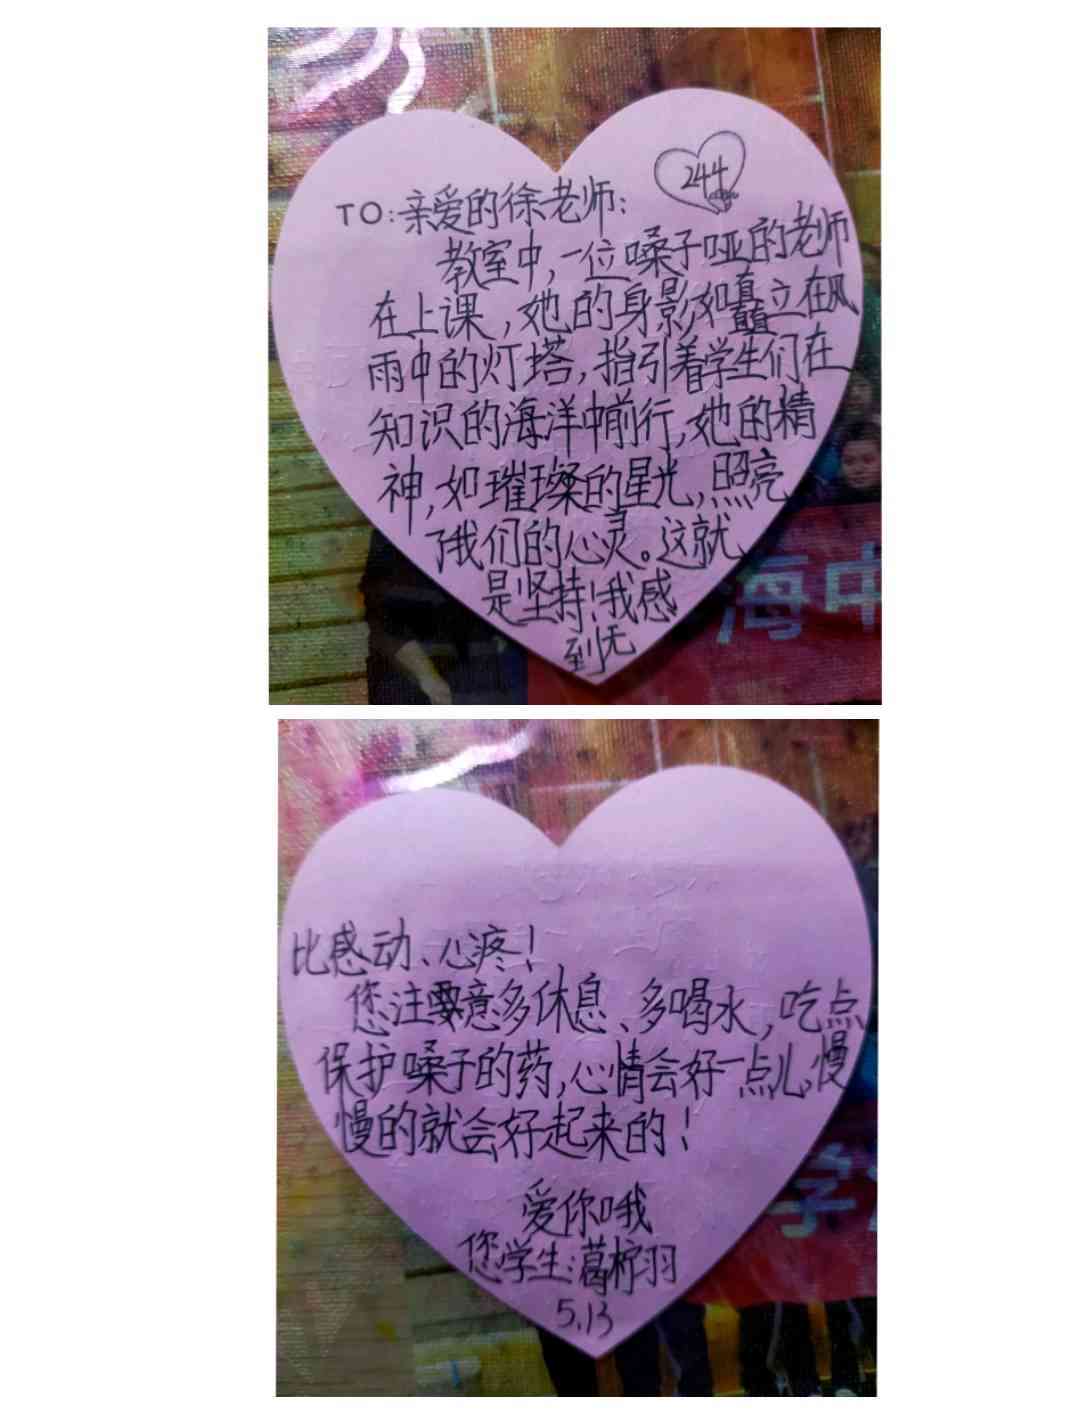 244
TO:亲爱的徐老师:
教室中,一位嗓子哑的老师
在上课,她的身影如矗立在风
雨中的灯塔,指引着学生们在
知识的海洋中前行,她的精
神,如璀璨的星光,照亮
了我们的心灵。这就
是坚持!我感
到无
海中
比感动、心疼!
您注要意多休息、多喝水,吃点
保护嗓子的药,心情会好一点儿,慢
慢的就会好起来的!
爱你哦
您学生:葛柠羽
5.13
学